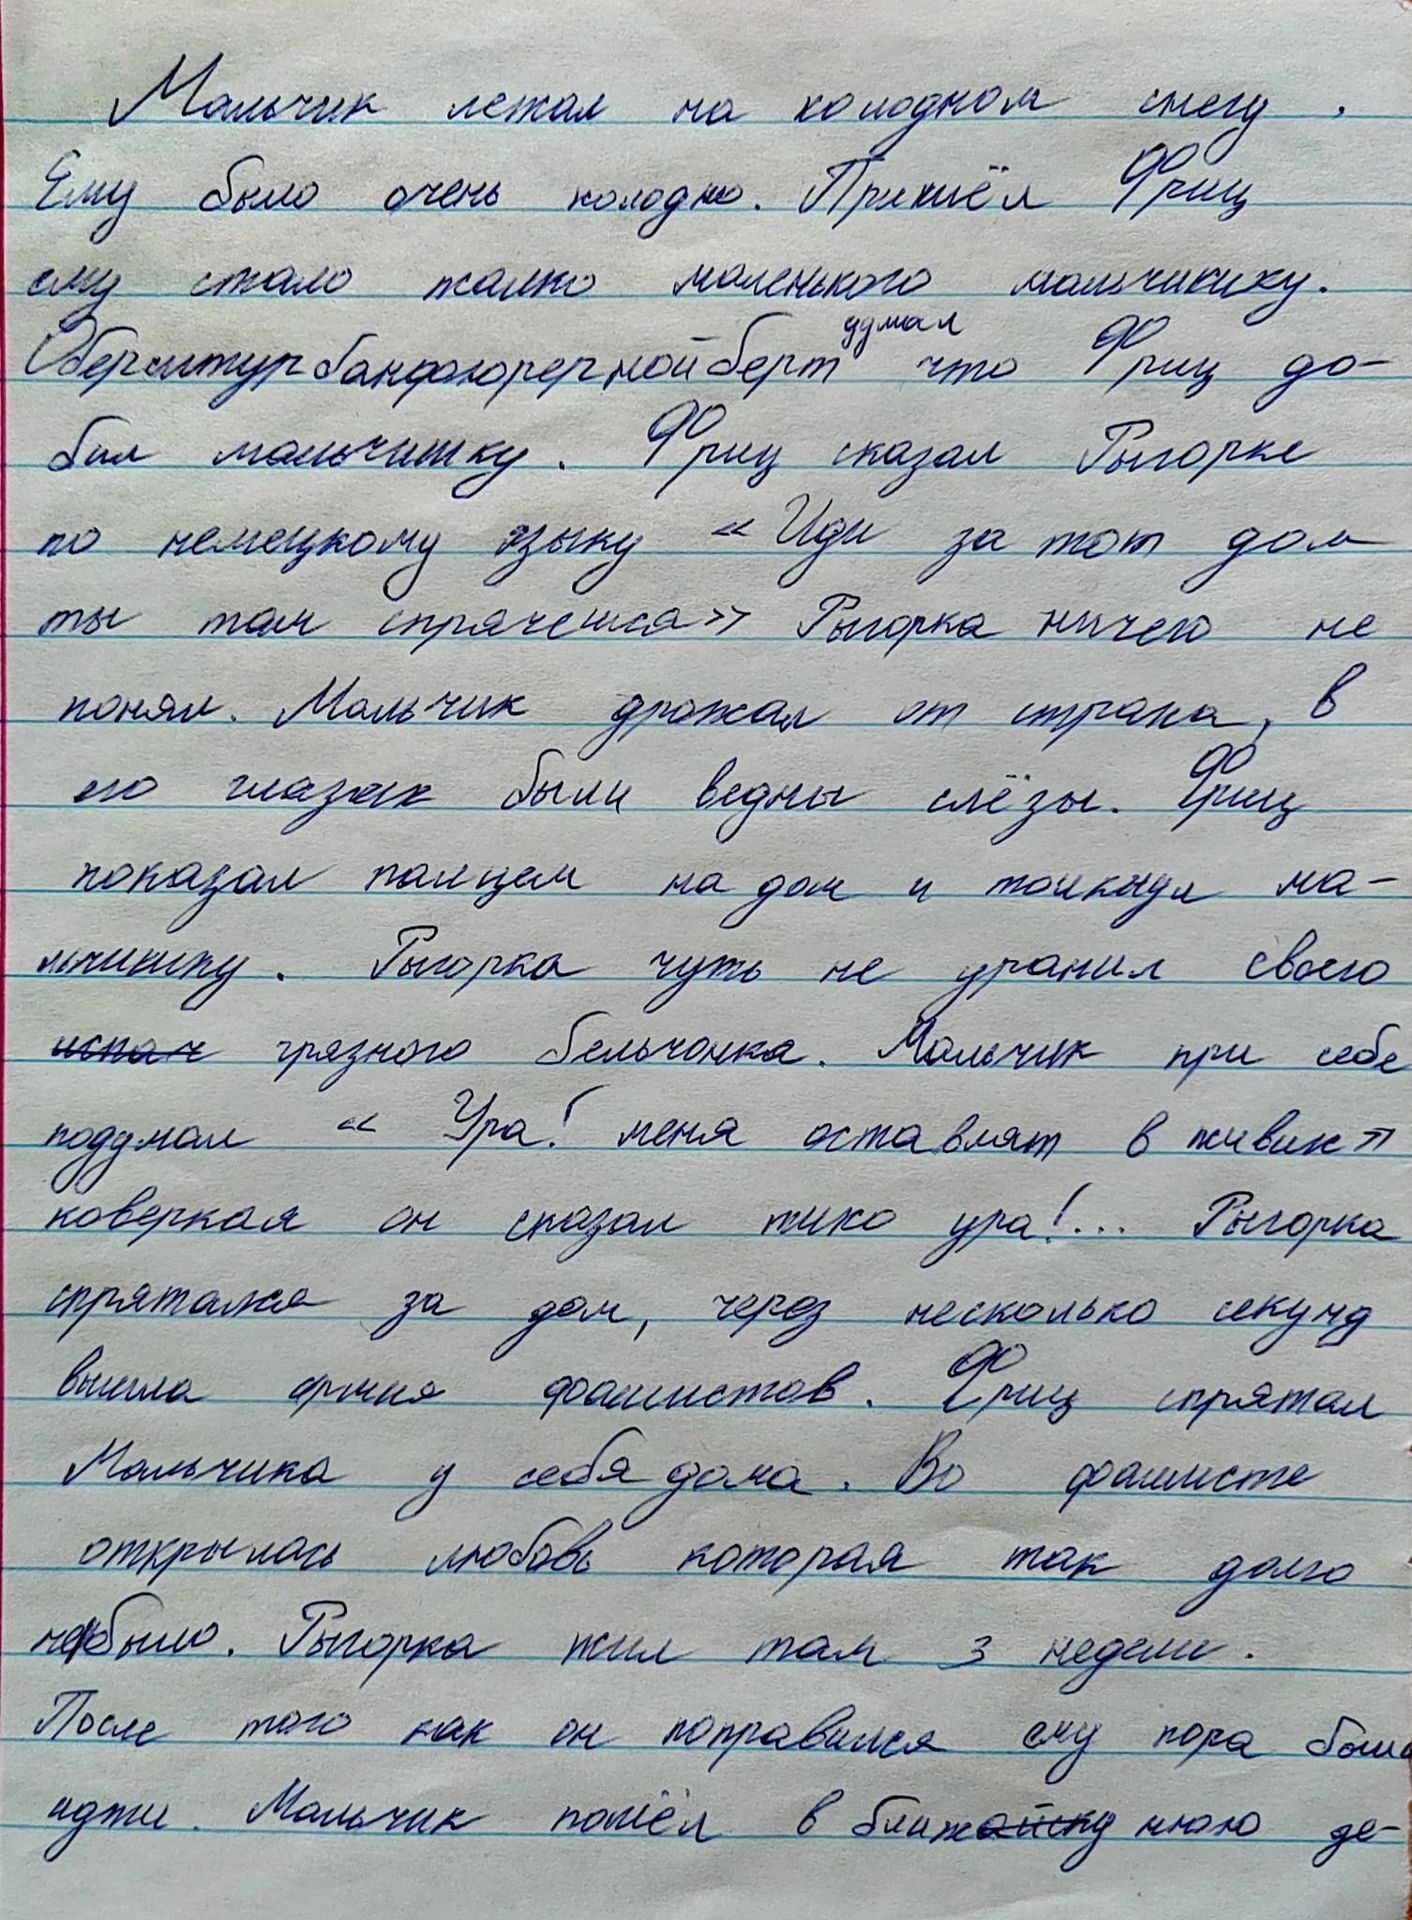 Мальчик лежал на холодном снегу.
Ему было очень холодно. Пришёл Фриц
ему стало жалко маленького мальчишку.
удмал
Оберштурбанфюрернойберт что Фриц до-
бил мальчишку. Фриц сказал Рыгорке
по немецкому языку « Иди за тот дом
ты там спрячешся» Рыгорка ничего не
понял. Мальчик дрожал от страха, в
его глазах были ведны слёзы. Фриц
показал пальцем на дом и толкнул ма-
льчишку. Рыгорка чуть не уранил своего
испач грязного бельчонка. Мальчик при себе
подумал « Ура! меня оставлят в живих»
коверкая он сказал тихо ура!... Рыгорка
спрятался за дом, через несколько секунд
вышла армия фашистов. Фриц спрятал
Мальчика у себя дома. Во фашисте
открылась любовь которая так долго
небыло. Рыгорка жил там 3 недели.
После того как он поправился ему пора было
идти. Мальчик пошёл в ближнюю де-